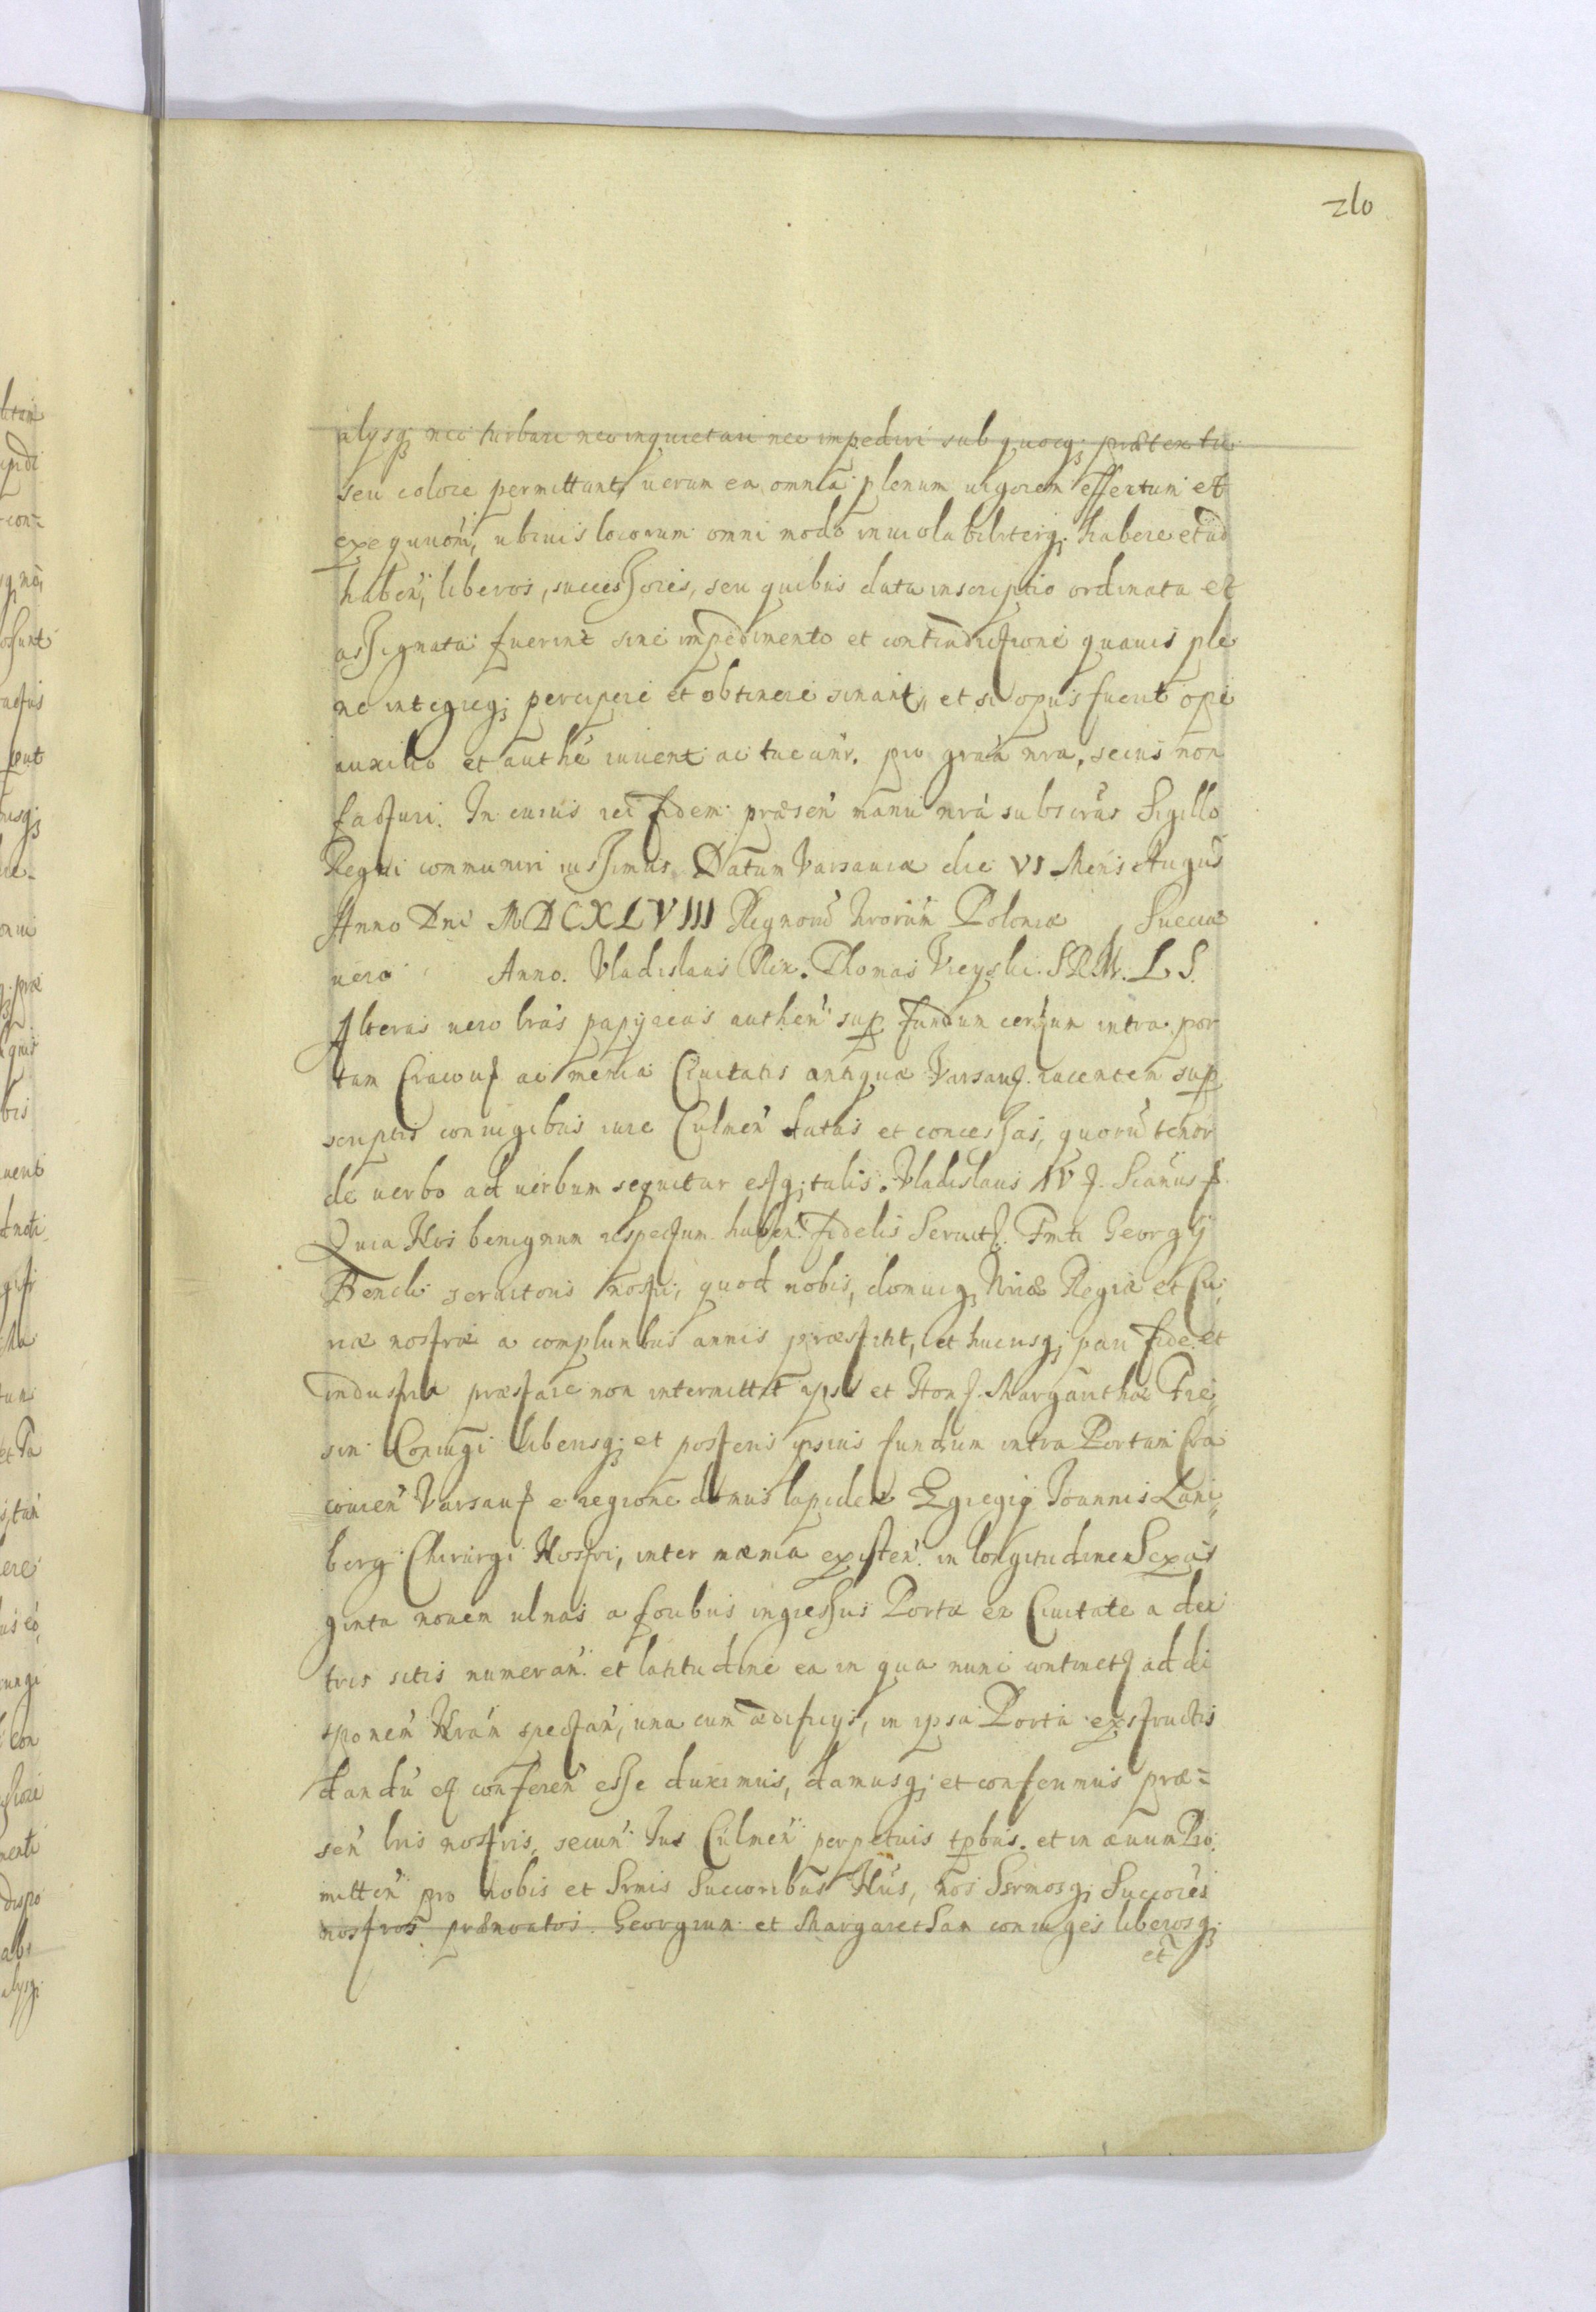 210
alysq; nec turbari nec inquietari nec impediri sub quocq; prætextu
seu colore permittant, uerum ea omnia plenum uigorem effectum et
exequuõm, ubiuis locorum omni modo inuiolabiliterq; habere et ad
haben̄, liberos, successores, seu quibus data inscriptio ordinata et
assignata fuerint sine impedimento et contradictione quauis ple
ne integreq; percipere et obtinere sinant, et si opus fuerit ope
auxilio et authē iuuent ac tueanr. pro grãa nrã, secus non
facturi. In cuius rei fidem præsen̄ manu nrã subscrãs Sigillo
Regni communiri iussimus. Datum Varsauiæ die VI Mensis Augus̃
Anno Dnĩ MDCXLVIII Regnorũ Nrorũm Poloniæ Sueciæ
uero Anno. Vladislaus Rex. Thomas Vieyski. S.R.M. L. S.
Alteras uero lrãs papyreas authen̄ sup fundum certum intra por
tam Cracouſ ac mænia Ciuitatis antiquæ Varsauſ. iacentem sup
scriptis coniugibus iure Culmen̄ datas et concessas, quorũ tenor
de uerbo ad uerbum sequitur estq; talis. Vladislaus IV ſ. Sciãnus ſ.
Quia Nos benignum respectum haben̄ fidelis Seruitſ. Fmti Georgij
Bencli seruitoris nostri, quod nobis, domuiq; Nræ Regiæ et Cu
riæ nostræ a compluribus annis præstitit, et hucusq; pari fide et
industria præstare non intermittit ipsi et Honſ. Margarithæ Fre
sin Coniugi liberisq; et posteris ipsius fundum intra Portam Cra
couien̄ Varsauſ e regione domus lapideæ Egregij Joannis Lani
berg Chirurgi Nostri, inter mænia existen̄ in longitudinem Sexa
ginta nouem ulnas a foribus ingressus Portæ ex Ciuitate a dex
tris sitis numeran̄ et latitudine ea in qua nunc continetſ ad di
sponem̄ Nrãm spectan̄, una cum ædificijs, in ipsa Porta exstructis
dandũ et conferen̄ esse duximus, damusq; et conferimus præ=
sen̄ lris nostris, secun̄ Jus Culmen̄ perpetuis tpbus. et in æuum Pro
mitten̄ pro nobis et Srmis Succoribus Nris, nos Sermosq; Succores
nostros prænoatos Georgium et Margaretham coniuges liberosq;
et